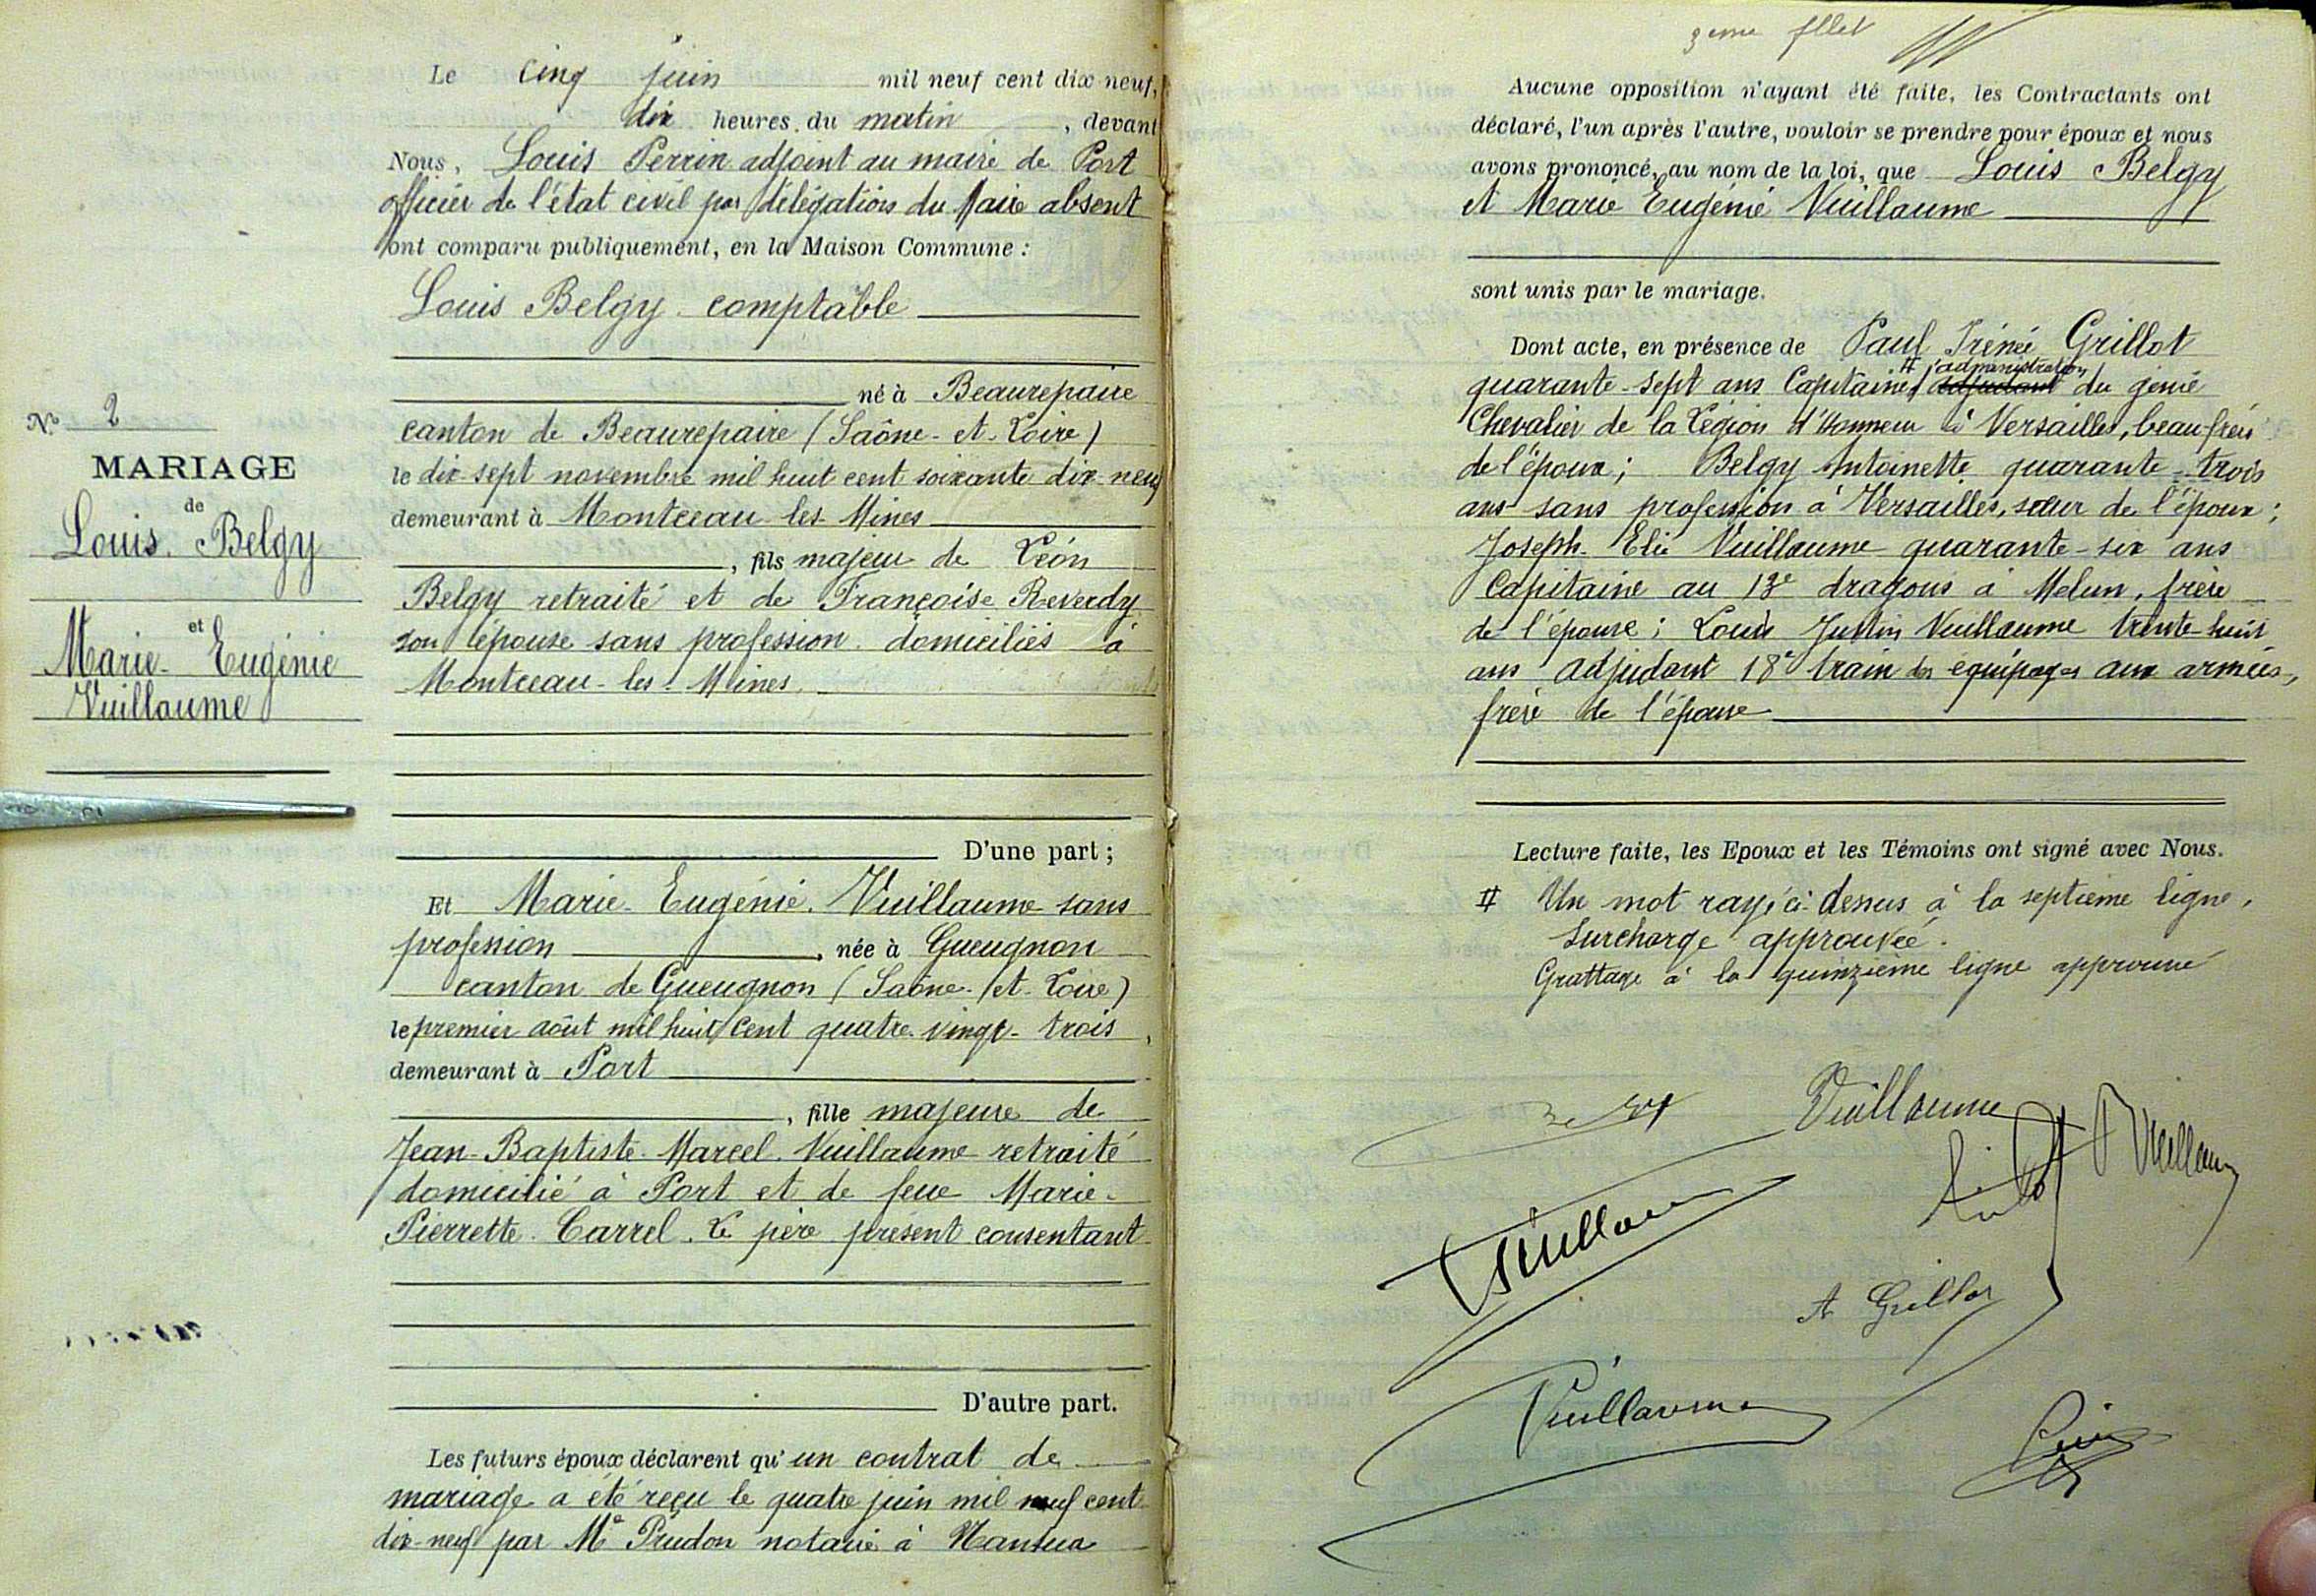 N° 2
MARIAGE
de
Louis Belgy
et
Marie-Eugénie
Vuillaume
Le cinq juin mil neuf cent dix-neuf,
dix heures du matin, devant
Nous, Louis Perrin adjoint au maire de Port
officier de l'état civil par délégation du Maire absent
ont comparu publiquement, en la Maison Commune :
Louis Belgy comptable
né à Beaurepaire
canton de Beaurepaire (Saône-et-Loire)
le dix-sept novembre mil huit cent soixante dix-neuf
demeurant à Montceau-les-Mines
, fils majeur de Léon
Belgy retraité et de Françoise Reverdy
son épouse sans profession domiciliés à
Montceau-les-Mines
D'une part ;
Et Marie-Eugénie Vuillaume sans
profession, née à Gueugnon
canton de Gueugnon (Saône-et-Loire)
le premier août mil huit cent quatre-vingt-trois,
demeurant à Port
, fille majeure de
Jean-Baptiste Marcel Vuillaume retraité
domicilié à Port et de feue Marie-
Pierrette Carrel. Le père présent consentant
D'autre part.
Les futurs époux déclarent qu'un contrat de
mariage a été reçu le quatre juin mil neuf cent
dix-neuf par Me Prudon notaire à Nantua
3eme fllet
Aucune opposition n'ayant été faite, les Contractants ont
déclaré, l'un après l'autre, vouloir se prendre pour époux et nous
avons prononcé, au nom de la loi, que Louis Belgy
et Marie Eugénie Vuillaume
sont unis par le mariage.
Dont acte, en présence de Paul Irénée Grillot
# d'administration
quarante-sept ans Capitaine adjudant du génie
Chevalier de la Légion d'Honneur à Versailles, beau-frère
de l'époux; Belgy Antoinette quarante-trois
ans sans profession à Versailles, sœur de l'époux;
Joseph-Elie Vuillaume quarante-six ans
Capitaine au 13e dragons à Melun, frère
de l'épouse; Louis Justin Vuillaume trente-huit
ans adjudant 18e train des équipages aux armées,
frère de l'épouse
Lecture faite, les Epoux et les Témoins ont signé avec Nous.
# Un mot rayé ci-dessus à la septième ligne,
Surcharge approuvée.
Grattage à la quinzième ligne approuvé
Vuillaume
Vuillaume
Vuillaume
A Grillot
Vuillaume